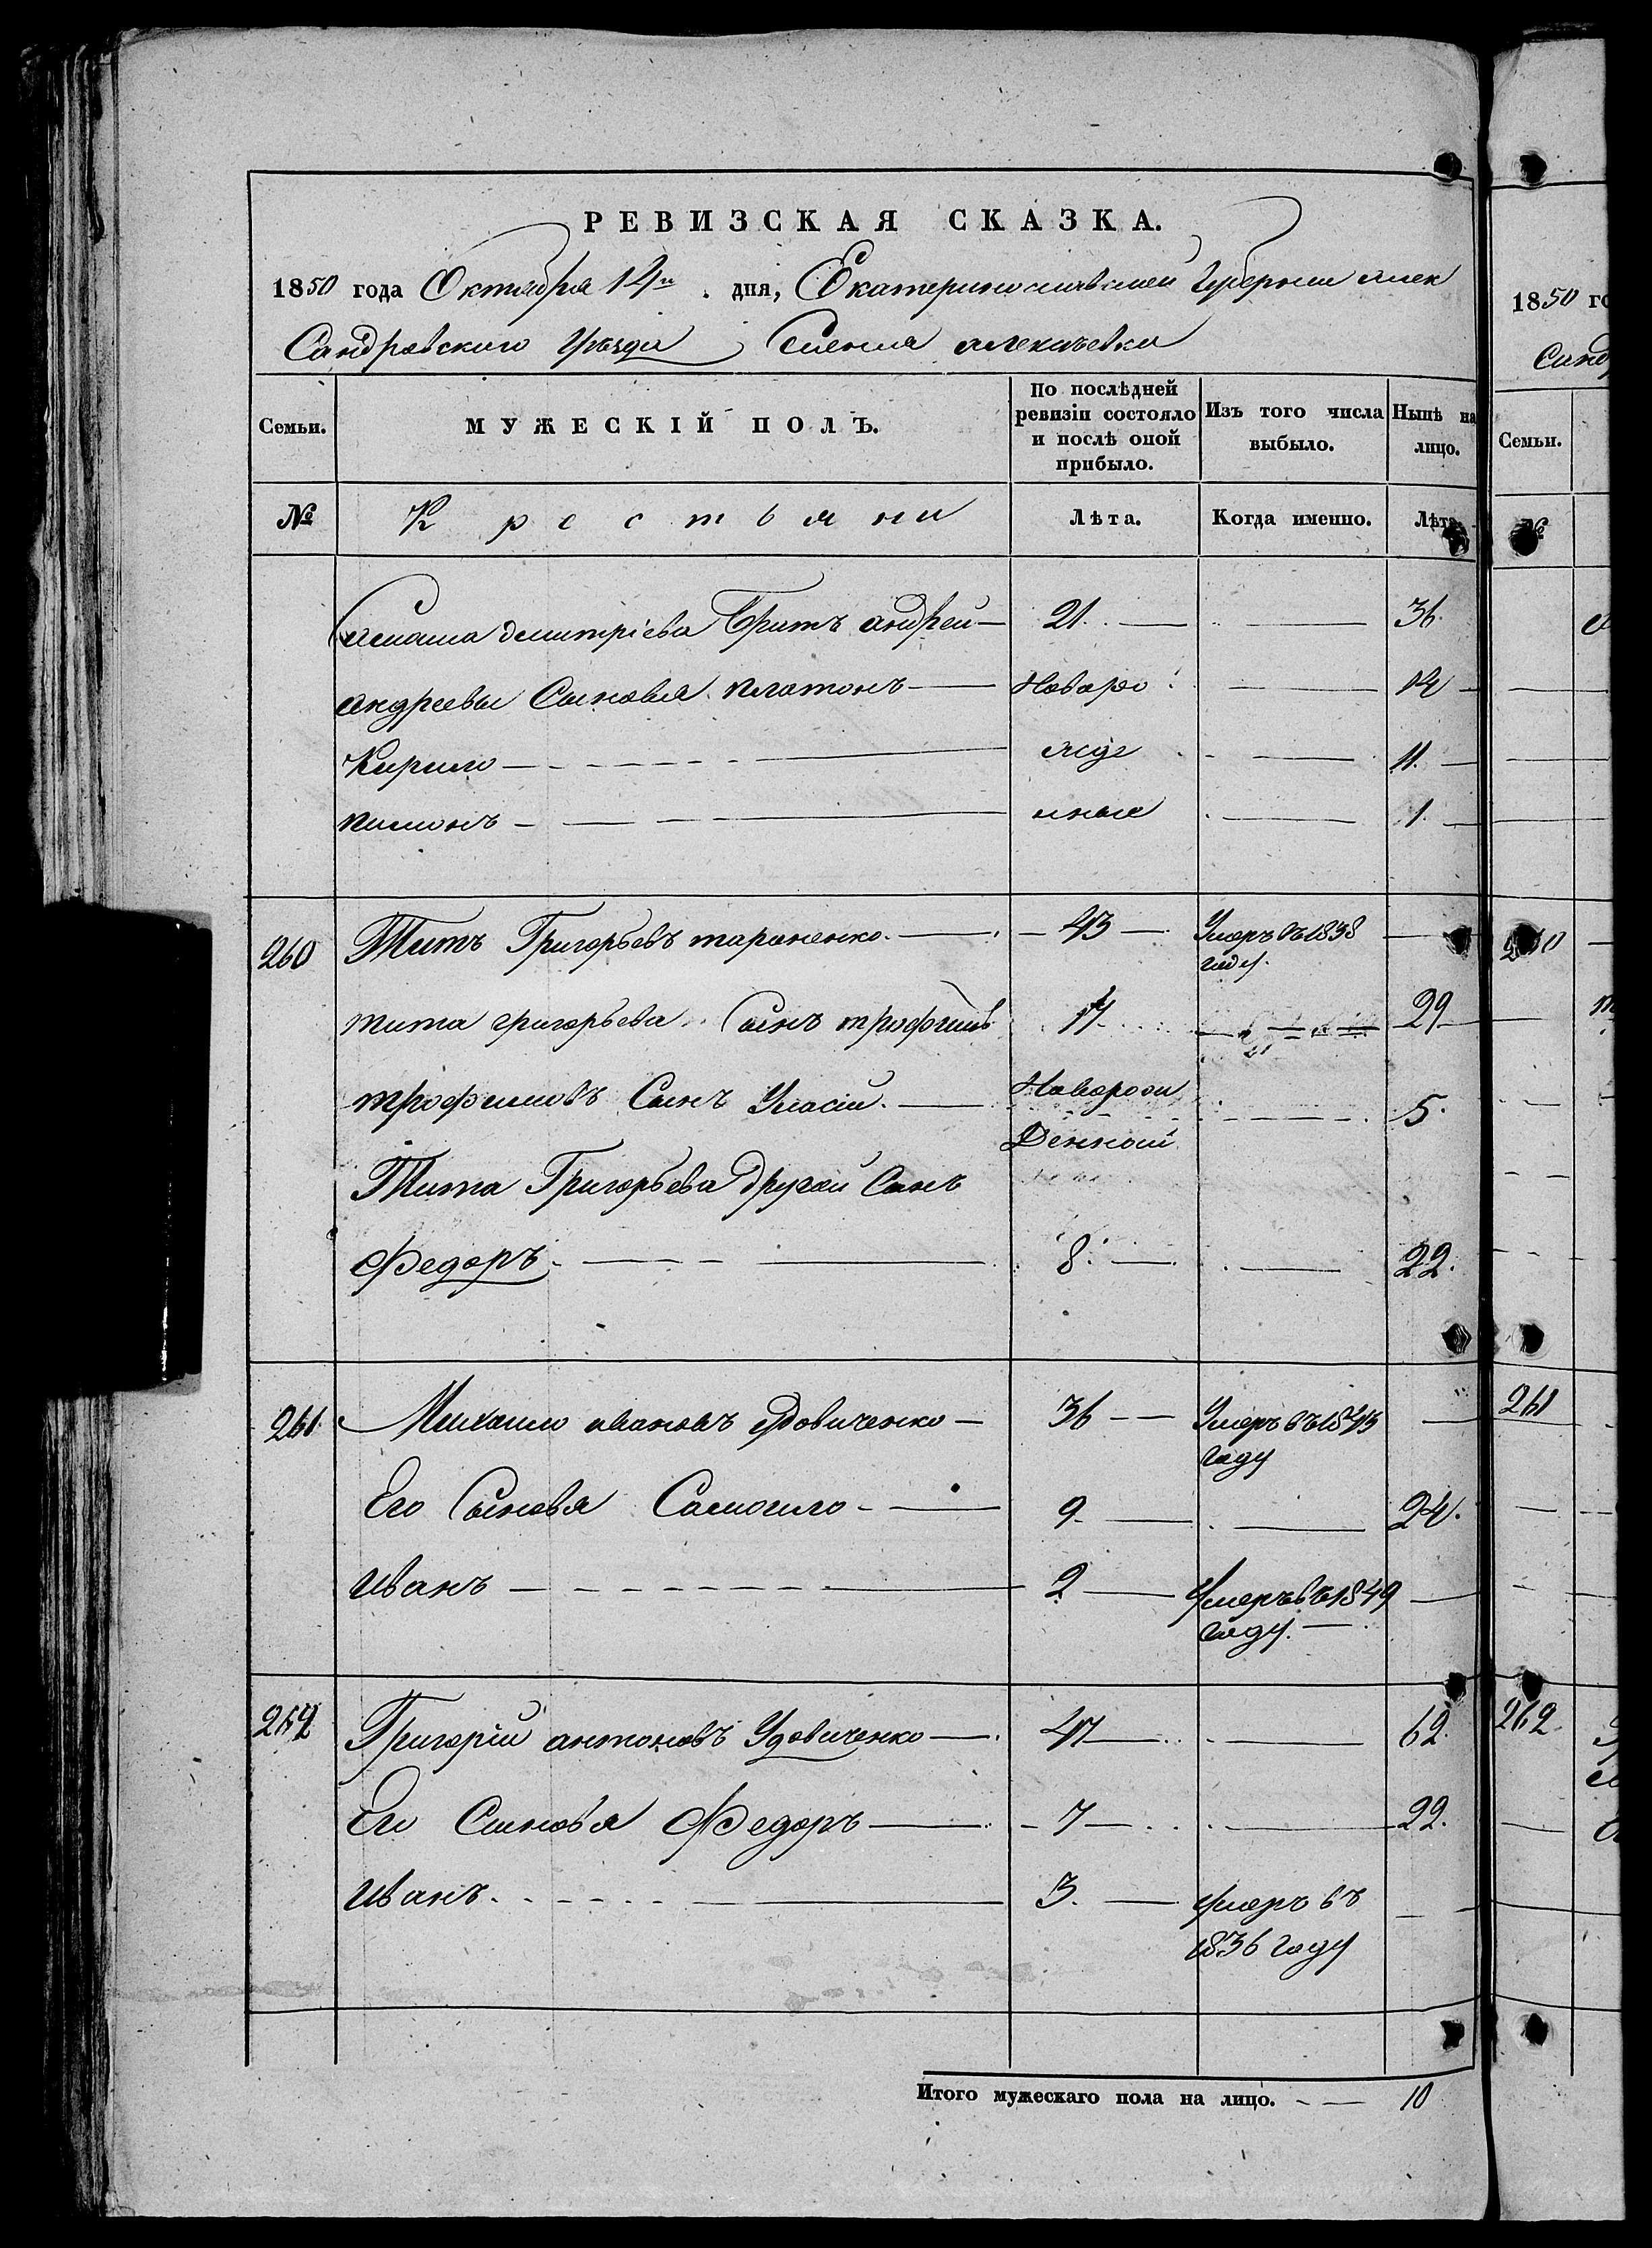 РЕВИЗСКАЯ СКАЗКА.
1850 года Октября 14го дня, Екатеринославской Губернии алек
Сандровского Уѣзда Сиенія алексѣевки
Семьи. МУЖЕСКІЙ ПОЛЪ. По послѣдней ревизіи состояло и послѣ оной прибыло. Изъ того числа выбыло. Нынѣ на лицо.
№ Крестьяни Лѣта. Когда именно. Лѣта.
дмитріева Братъ андрей 21. 36.
андреевы Сыновья платонъ Новоро 14
Кирило жде 11.
пимонъ нные 1.
260 Титъ Григорьевъ тараненко. 43 Умеръ въ 1838 году.
тита григорьева Сынъ трофимъ 14 29
трофимовъ Сынъ Уласій. Новорож Денной 5.
Тита Григорьева другой Сынъ
Федоръ. 8. 22.
261 Михаило ивановъ удовиченко 36 Умеръ въ 1843 году
Его Сыновья Самоило 9 24.
иванъ 2 Умеръ въ 1849 году.
262 Григорій антоновъ Удовиченко 47 62.
Его Сыновья Федоръ 7 22.
иванъ. 3. Умеръ въ 1836 году
Итого мужескаго пола на лицо. 10
1850 го
Санд
Семьи.
№
260
261
262